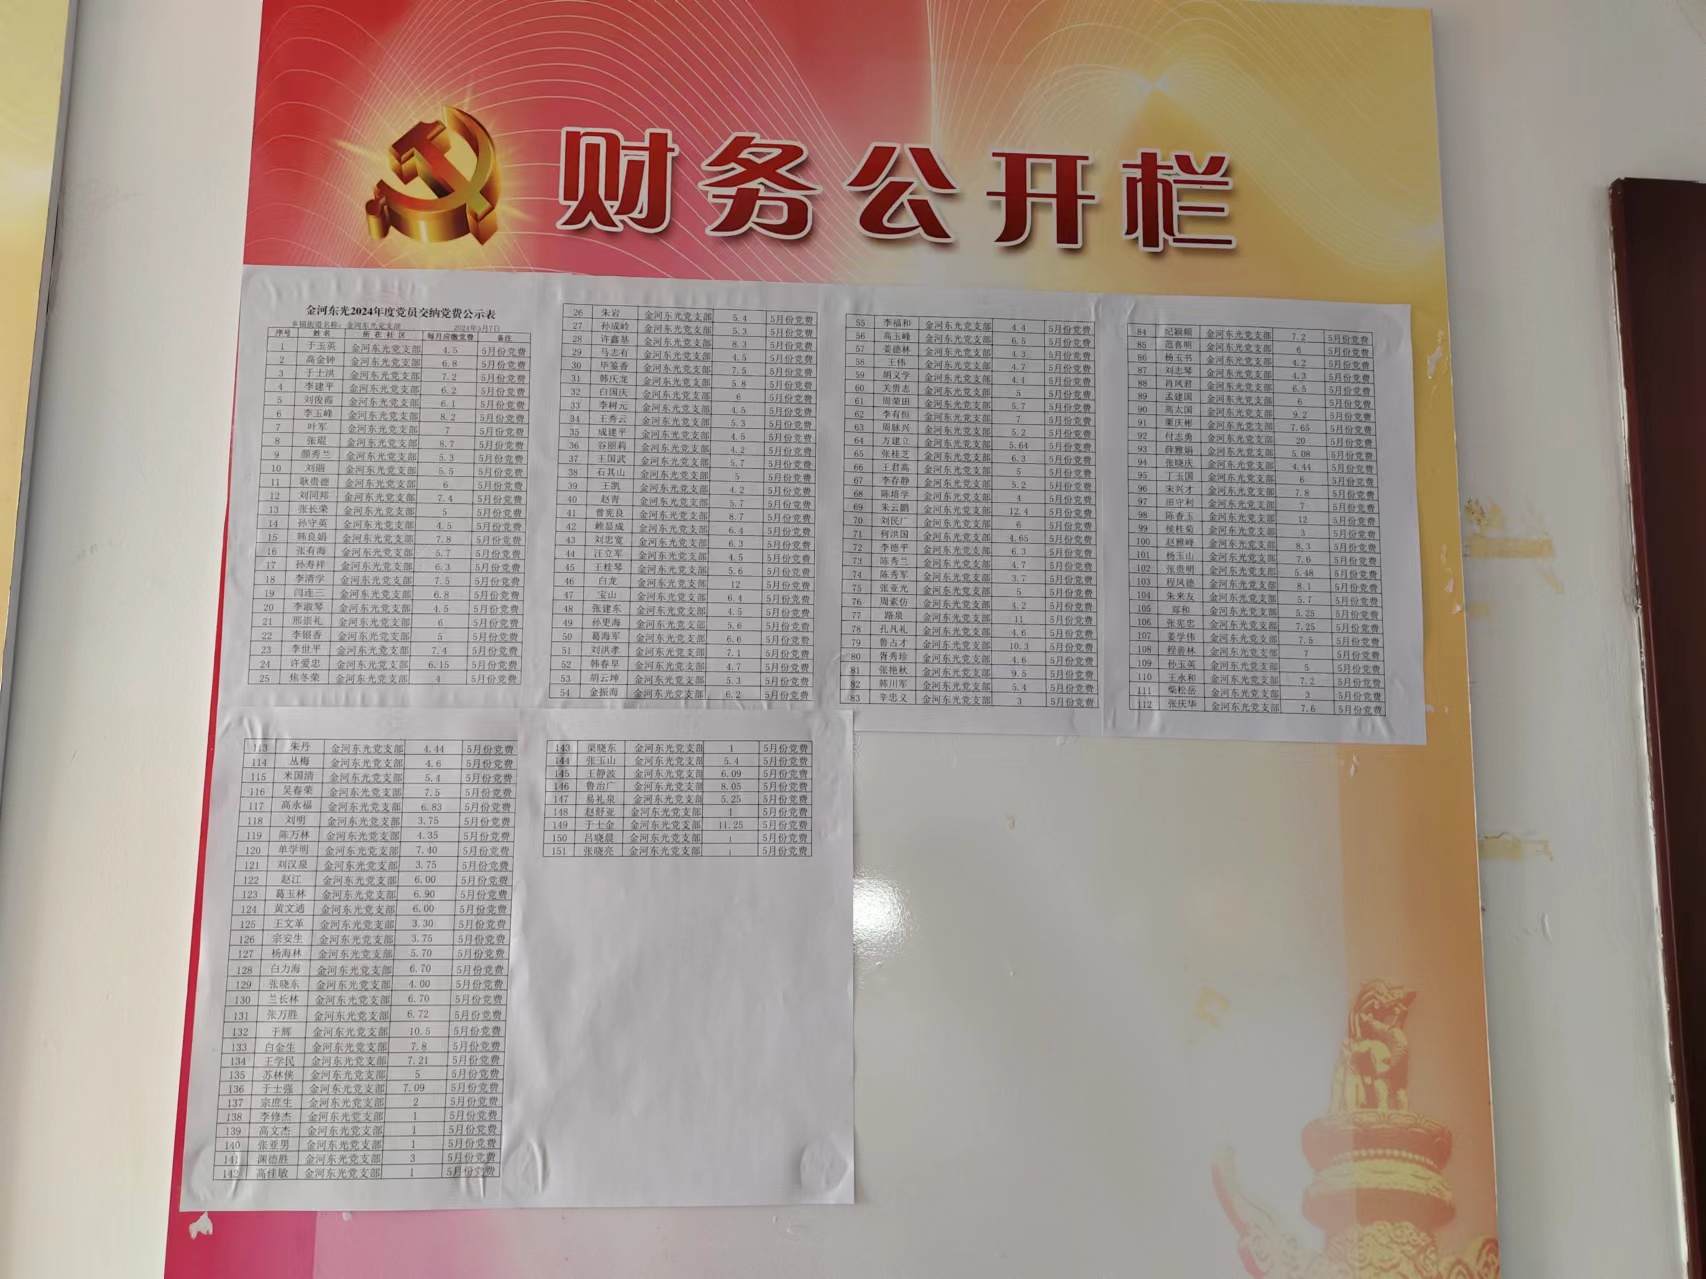 财务公开栏
金河东光2024年度党员交纳党费公示表
乡镇街道名称：金河东光党支部 2024年5月7日
序号 姓名 所在社区 每月应缴党费 备注
1 于玉英 金河东光党支部 4.5 5月份党费
2 高金钟 金河东光党支部 6.8 5月份党费
3 于士洪 金河东光党支部 7.2 5月份党费
4 李建平 金河东光党支部 6.2 5月份党费
5 刘俊霞 金河东光党支部 6.1 5月份党费
6 李玉峰 金河东光党支部 8.2 5月份党费
7 叶军 金河东光党支部 7 5月份党费
8 张琨 金河东光党支部 8.7 5月份党费
9 颜秀兰 金河东光党支部 5.3 5月份党费
10 刘丽 金河东光党支部 5.5 5月份党费
11 耿贵德 金河东光党支部 6 5月份党费
12 刘同邦 金河东光党支部 7.4 5月份党费
13 张长荣 金河东光党支部 5 5月份党费
14 孙守英 金河东光党支部 4.5 5月份党费
15 韩良娟 金河东光党支部 7.8 5月份党费
16 张有海 金河东光党支部 5.7 5月份党费
17 孙寿祥 金河东光党支部 6.3 5月份党费
18 李清学 金河东光党支部 7.5 5月份党费
19 闫连三 金河东光党支部 6.8 5月份党费
20 李淑琴 金河东光党支部 4.5 5月份党费
21 邢崇礼 金河东光党支部 6 5月份党费
22 李银香 金河东光党支部 5 5月份党费
23 李世平 金河东光党支部 7.4 5月份党费
24 许爱忠 金河东光党支部 6.15 5月份党费
25 焦冬荣 金河东光党支部 4 5月份党费
26 朱岩 金河东光党支部 5.4 5月份党费
27 孙成岭 金河东光党支部 5.3 5月份党费
28 许鑫基 金河东光党支部 8.3 5月份党费
29 马志有 金河东光党支部 4.5 5月份党费
30 毕鉴香 金河东光党支部 7.5 5月份党费
31 韩庆龙 金河东光党支部 5.8 5月份党费
32 白国庆 金河东光党支部 6 5月份党费
33 李树元 金河东光党支部 4.5 5月份党费
34 王秀云 金河东光党支部 5.3 5月份党费
35 成建平 金河东光党支部 4.5 5月份党费
36 谷丽莉 金河东光党支部 4.2 5月份党费
37 王国武 金河东光党支部 5.7 5月份党费
38 石其山 金河东光党支部 5 5月份党费
39 王凯 金河东光党支部 4.2 5月份党费
40 赵青 金河东光党支部 5.7 5月份党费
41 曾宪良 金河东光党支部 8.7 5月份党费
42 赖显成 金河东光党支部 6.4 5月份党费
43 刘忠宽 金河东光党支部 6.3 5月份党费
44 汪立军 金河东光党支部 4.5 5月份党费
45 王桂琴 金河东光党支部 5.6 5月份党费
46 白龙 金河东光党支部 12 5月份党费
47 宝山 金河东光党支部 6.4 5月份党费
48 张建东 金河东光党支部 4.5 5月份党费
49 孙更海 金河东光党支部 5.6 5月份党费
50 葛海军 金河东光党支部 6.6 5月份党费
51 刘洪孝 金河东光党支部 7.1 5月份党费
52 韩春早 金河东光党支部 4.7 5月份党费
53 胡云坤 金河东光党支部 5.3 5月份党费
54 金振海 金河东光党支部 6.2 5月份党费
55 李福和 金河东光党支部 4.4 5月份党费
56 高玉峰 金河东光党支部 6.5 5月份党费
57 姜德林 金河东光党支部 4.3 5月份党费
58 王伟 金河东光党支部 4.7 5月份党费
59 胡义学 金河东光党支部 4.4 5月份党费
60 关贵志 金河东光党支部 5 5月份党费
61 周荣田 金河东光党支部 5.7 5月份党费
62 李有恒 金河东光党支部 7 5月份党费
63 周脉兴 金河东光党支部 5.2 5月份党费
64 方建立 金河东光党支部 5.64 5月份党费
65 张桂芝 金河东光党支部 6.3 5月份党费
66 王君高 金河东光党支部 5 5月份党费
67 李存静 金河东光党支部 5.2 5月份党费
68 陈培学 金河东光党支部 4 5月份党费
69 朱云鹏 金河东光党支部 12.4 5月份党费
70 刘民厂 金河东光党支部 6 5月份党费
71 何洪国 金河东光党支部 4.65 5月份党费
72 李德平 金河东光党支部 6.3 5月份党费
73 陈秀兰 金河东光党支部 4.7 5月份党费
74 陈秀军 金河东光党支部 3.7 5月份党费
75 张亚光 金河东光党支部 5 5月份党费
76 周素仿 金河东光党支部 4.2 5月份党费
77 路泉 金河东光党支部 11 5月份党费
78 孔凡礼 金河东光党支部 4.6 5月份党费
79 鲁占才 金河东光党支部 10.3 5月份党费
80 胥秀珍 金河东光党支部 4.6 5月份党费
81 张艳秋 金河东光党支部 9.5 5月份党费
82 韩川军 金河东光党支部 5.4 5月份党费
83 辛忠义 金河东光党支部 3 5月份党费
84 纪颖颖 金河东光党支部 7.2 5月份党费
85 范喜明 金河东光党支部 6 5月份党费
86 杨玉书 金河东光党支部 4.2 5月份党费
87 刘志琴 金河东光党支部 4.3 5月份党费
88 肖凤君 金河东光党支部 6.5 5月份党费
89 孟建国 金河东光党支部 6 5月份党费
90 高太国 金河东光党支部 9.2 5月份党费
91 栗庆彬 金河东光党支部 7.65 5月份党费
92 付志勇 金河东光党支部 20 5月份党费
93 薛雅娟 金河东光党支部 5.08 5月份党费
94 张晓庆 金河东光党支部 4.44 5月份党费
95 丁玉国 金河东光党支部 6 5月份党费
96 宋兴才 金河东光党支部 7.8 5月份党费
97 田守利 金河东光党支部 7 5月份党费
98 陈香玉 金河东光党支部 12 5月份党费
99 候桂菊 金河东光党支部 3 5月份党费
100 赵雅峰 金河东光党支部 8.3 5月份党费
101 杨玉山 金河东光党支部 7.6 5月份党费
102 张贵明 金河东光党支部 5.48 5月份党费
103 程凤德 金河东光党支部 8.1 5月份党费
104 朱来友 金河东光党支部 5.7 5月份党费
105 郑和 金河东光党支部 5.25 5月份党费
106 张宪忠 金河东光党支部 7.25 5月份党费
107 姜学伟 金河东光党支部 7.5 5月份党费
108 程善林 金河东光党支部 7 5月份党费
109 孙玉英 金河东光党支部 5 5月份党费
110 王永和 金河东光党支部 7.2 5月份党费
111 柴松岳 金河东光党支部 3 5月份党费
112 张庆华 金河东光党支部 7.6 5月份党费
113 朱丹 金河东光党支部 4.44 5月份党费
114 丛梅 金河东光党支部 4.6 5月份党费
115 米国清 金河东光党支部 5.4 5月份党费
116 吴春荣 金河东光党支部 7.5 5月份党费
117 高永福 金河东光党支部 6.83 5月份党费
118 刘明 金河东光党支部 3.75 5月份党费
119 陈万林 金河东光党支部 4.35 5月份党费
120 单学明 金河东光党支部 7.40 5月份党费
121 刘汉泉 金河东光党支部 3.75 5月份党费
122 赵江 金河东光党支部 6.00 5月份党费
123 葛玉林 金河东光党支部 6.90 5月份党费
124 黄文通 金河东光党支部 6.00 5月份党费
125 王文革 金河东光党支部 3.30 5月份党费
126 宗安生 金河东光党支部 3.75 5月份党费
127 杨海林 金河东光党支部 5.70 5月份党费
128 白力海 金河东光党支部 6.70 5月份党费
129 张晓东 金河东光党支部 4.00 5月份党费
130 兰长林 金河东光党支部 6.70 5月份党费
131 张万胜 金河东光党支部 6.72 5月份党费
132 于辉 金河东光党支部 10.5 5月份党费
133 白金生 金河东光党支部 7.8 5月份党费
134 王学民 金河东光党支部 7.21 5月份党费
135 苏林侠 金河东光党支部 5 5月份党费
136 于士强 金河东光党支部 7.09 5月份党费
137 宗庶生 金河东光党支部 2 5月份党费
138 李修杰 金河东光党支部 1 5月份党费
139 高文杰 金河东光党支部 1 5月份党费
140 张亚男 金河东光党支部 1 5月份党费
141 渊德胜 金河东光党支部 3 5月份党费
142 高佳敏 金河东光党支部 1 5月份党费
143 梁晓东 金河东光党支部 1 5月份党费
144 张玉山 金河东光党支部 5.4 5月份党费
145 王静波 金河东光党支部 6.09 5月份党费
146 鲁治广 金河东光党支部 8.05 5月份党费
147 易礼泉 金河东光党支部 5.25 5月份党费
148 赵舒亚 金河东光党支部 1 5月份党费
149 于士金 金河东光党支部 11.25 5月份党费
150 吕晓晨 金河东光党支部 1 5月份党费
151 张晓亮 金河东光党支部 1 5月份党费